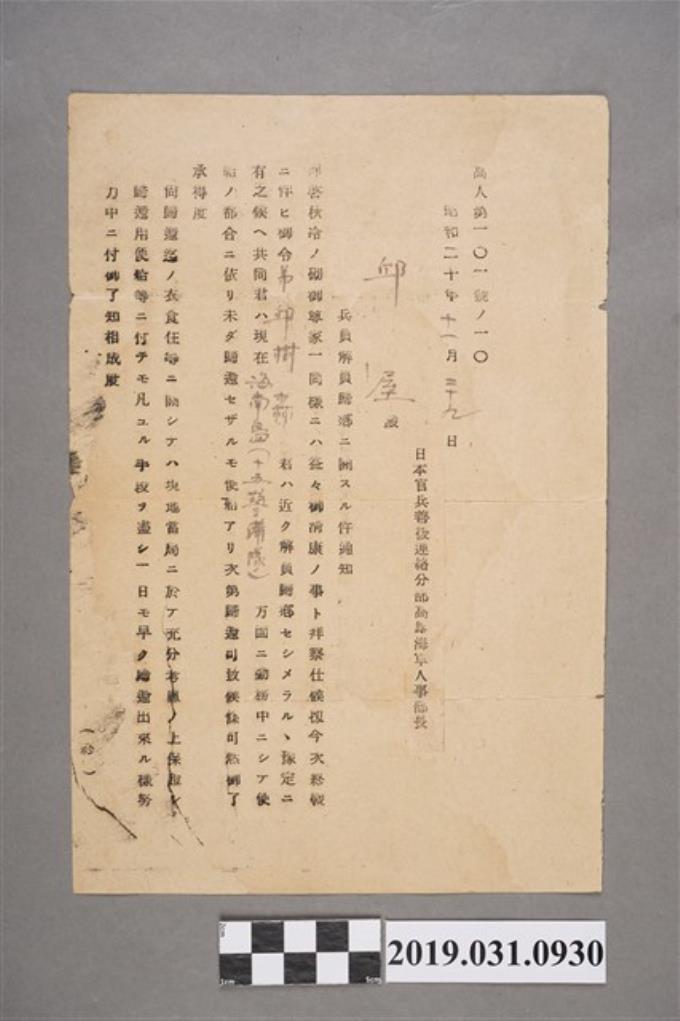 高人第一〇一號ノ一〇
昭和二十年十一月二十九日
日本官兵善後連絡分部高雄海軍人事部長
邱 屋 殿
兵員解員歸還ニ關スル件通知
拜啓秋冷ノ砌御尊家一同樣ニハ益々御淸康ノ事ト拜察仕候扨今次終戰
ニ伴ヒ御令弟邱樹 君ハ近ク解員歸鄕セシメラルヽ豫定ニ
有之候ヘ共同君ハ現在海南島(十五 備隊)方面ニ勤務中ニシテ使
船ノ都合ニ依リ未ダ歸還セザルモ使船アリ次第歸還可致候條可然御了
承得度
尙歸還迄ノ衣食住等ニ關シテハ現地當局ニ於テ充分考慮ノ上保 シ
歸還用使船等ニ付テモ凡ユル手段ヲ盡シ一日モ早ク歸還出來ル樣努
力中ニ付御了知相成度
(終)
2019.031.0930
1cm
5cm